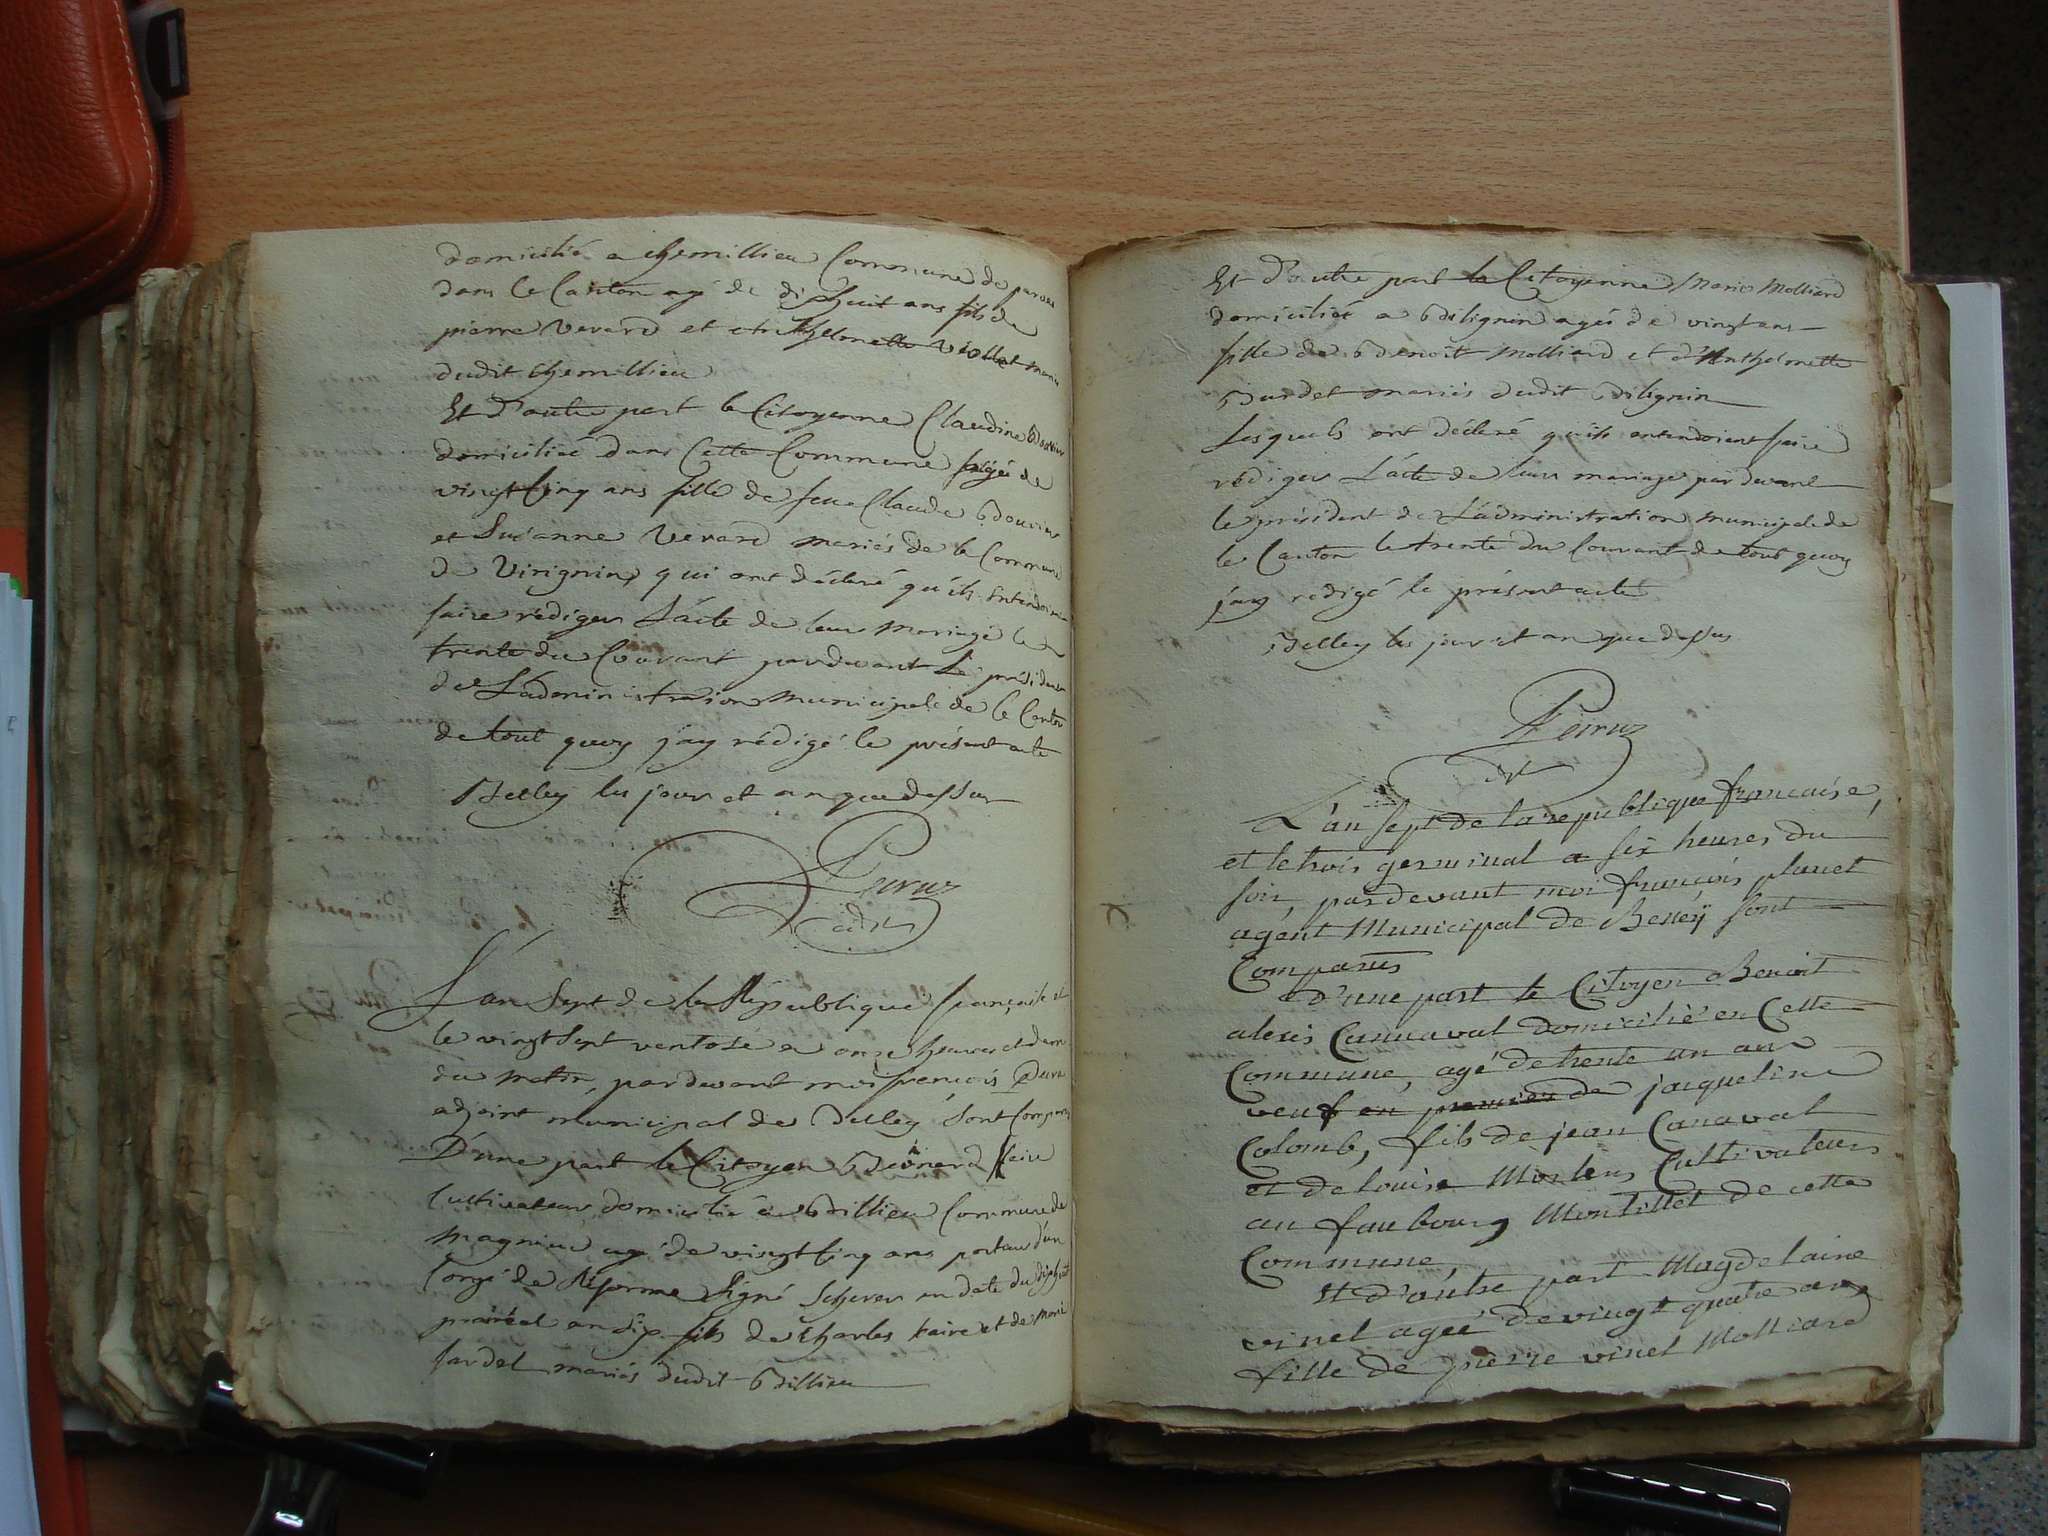 domicilié a Chemillieu Commune de parves
dans le Canton agé de diphuit ans fils de
pierre Verard et Anthelmette Viollet mariés
dudit Chemillieu
Et d'autre part la Citoyenne Claudine Bouvier
domiciliée dans Cette Commune agée de
vingt Cinq ans fille de feu Claude Bouvier
et Susanne Verard mariés de la Commune
de Virignin, qui ont déclaré qu'ils Entendoient
faire rédiger L'acte de leur mariage le
trente du Courant pardevant Le président
de L'administration Municipale de Ce Canton
de tout quoy j'ay rédigé le présent acte
Belley les jour et an que dessus
Peiruz
adjt
L'an Sept de la République française et
le vingt Sept ventose a onze heures et demi
du matin, pardevant moi françois
adjoint municipal de Belley, Sont Comparus
D'une part le Citoyen faire
Cultivateur domicilié à Billieu Commune de
Magnieu agé de vingt Cinq ans porteur d'un
Congé de Réforme Signé Scherer en date du diphuit
prairéal an Six fils de Charles faire et de Marie
Sardet mariés dudit Billieu
Et d'autre part la Citoyenne Marie Molliard
domiciliée a Bilignin agée de vingt ans
fille de Benoit Molliard et d'Anthelmette
Burdet mariés dudit Bilignin
Lesquels ont déclaré qu'ils entendoient faire
rédiger L'acte de leur mariage pardevant
le président de L'administration municipale de
Ce Canton le trente du Courant de tout quoy
j'ay redigé le présent acte
Belley les jour et an que dessus
Peiruz
adjt
L'an sept de la republique francaise,
et le trois germinal a six heures du
soir, pardevant moi françois
agent Municipal de Belleÿ sont
Comparus
D'une part le Citoyen Benoit
alexis Cannaval domicilié en Cette
Commune, agé de trente un ans
veuf en premier de jacqueline
Colomb, fils de jean Canaval
et de louise Cultivateurs
au faubourg Montillet de cette
Commune,
Et d'autre part Magdelaine
vinet ageé de vingt quatre ans
fille de pierre vinet Molliard